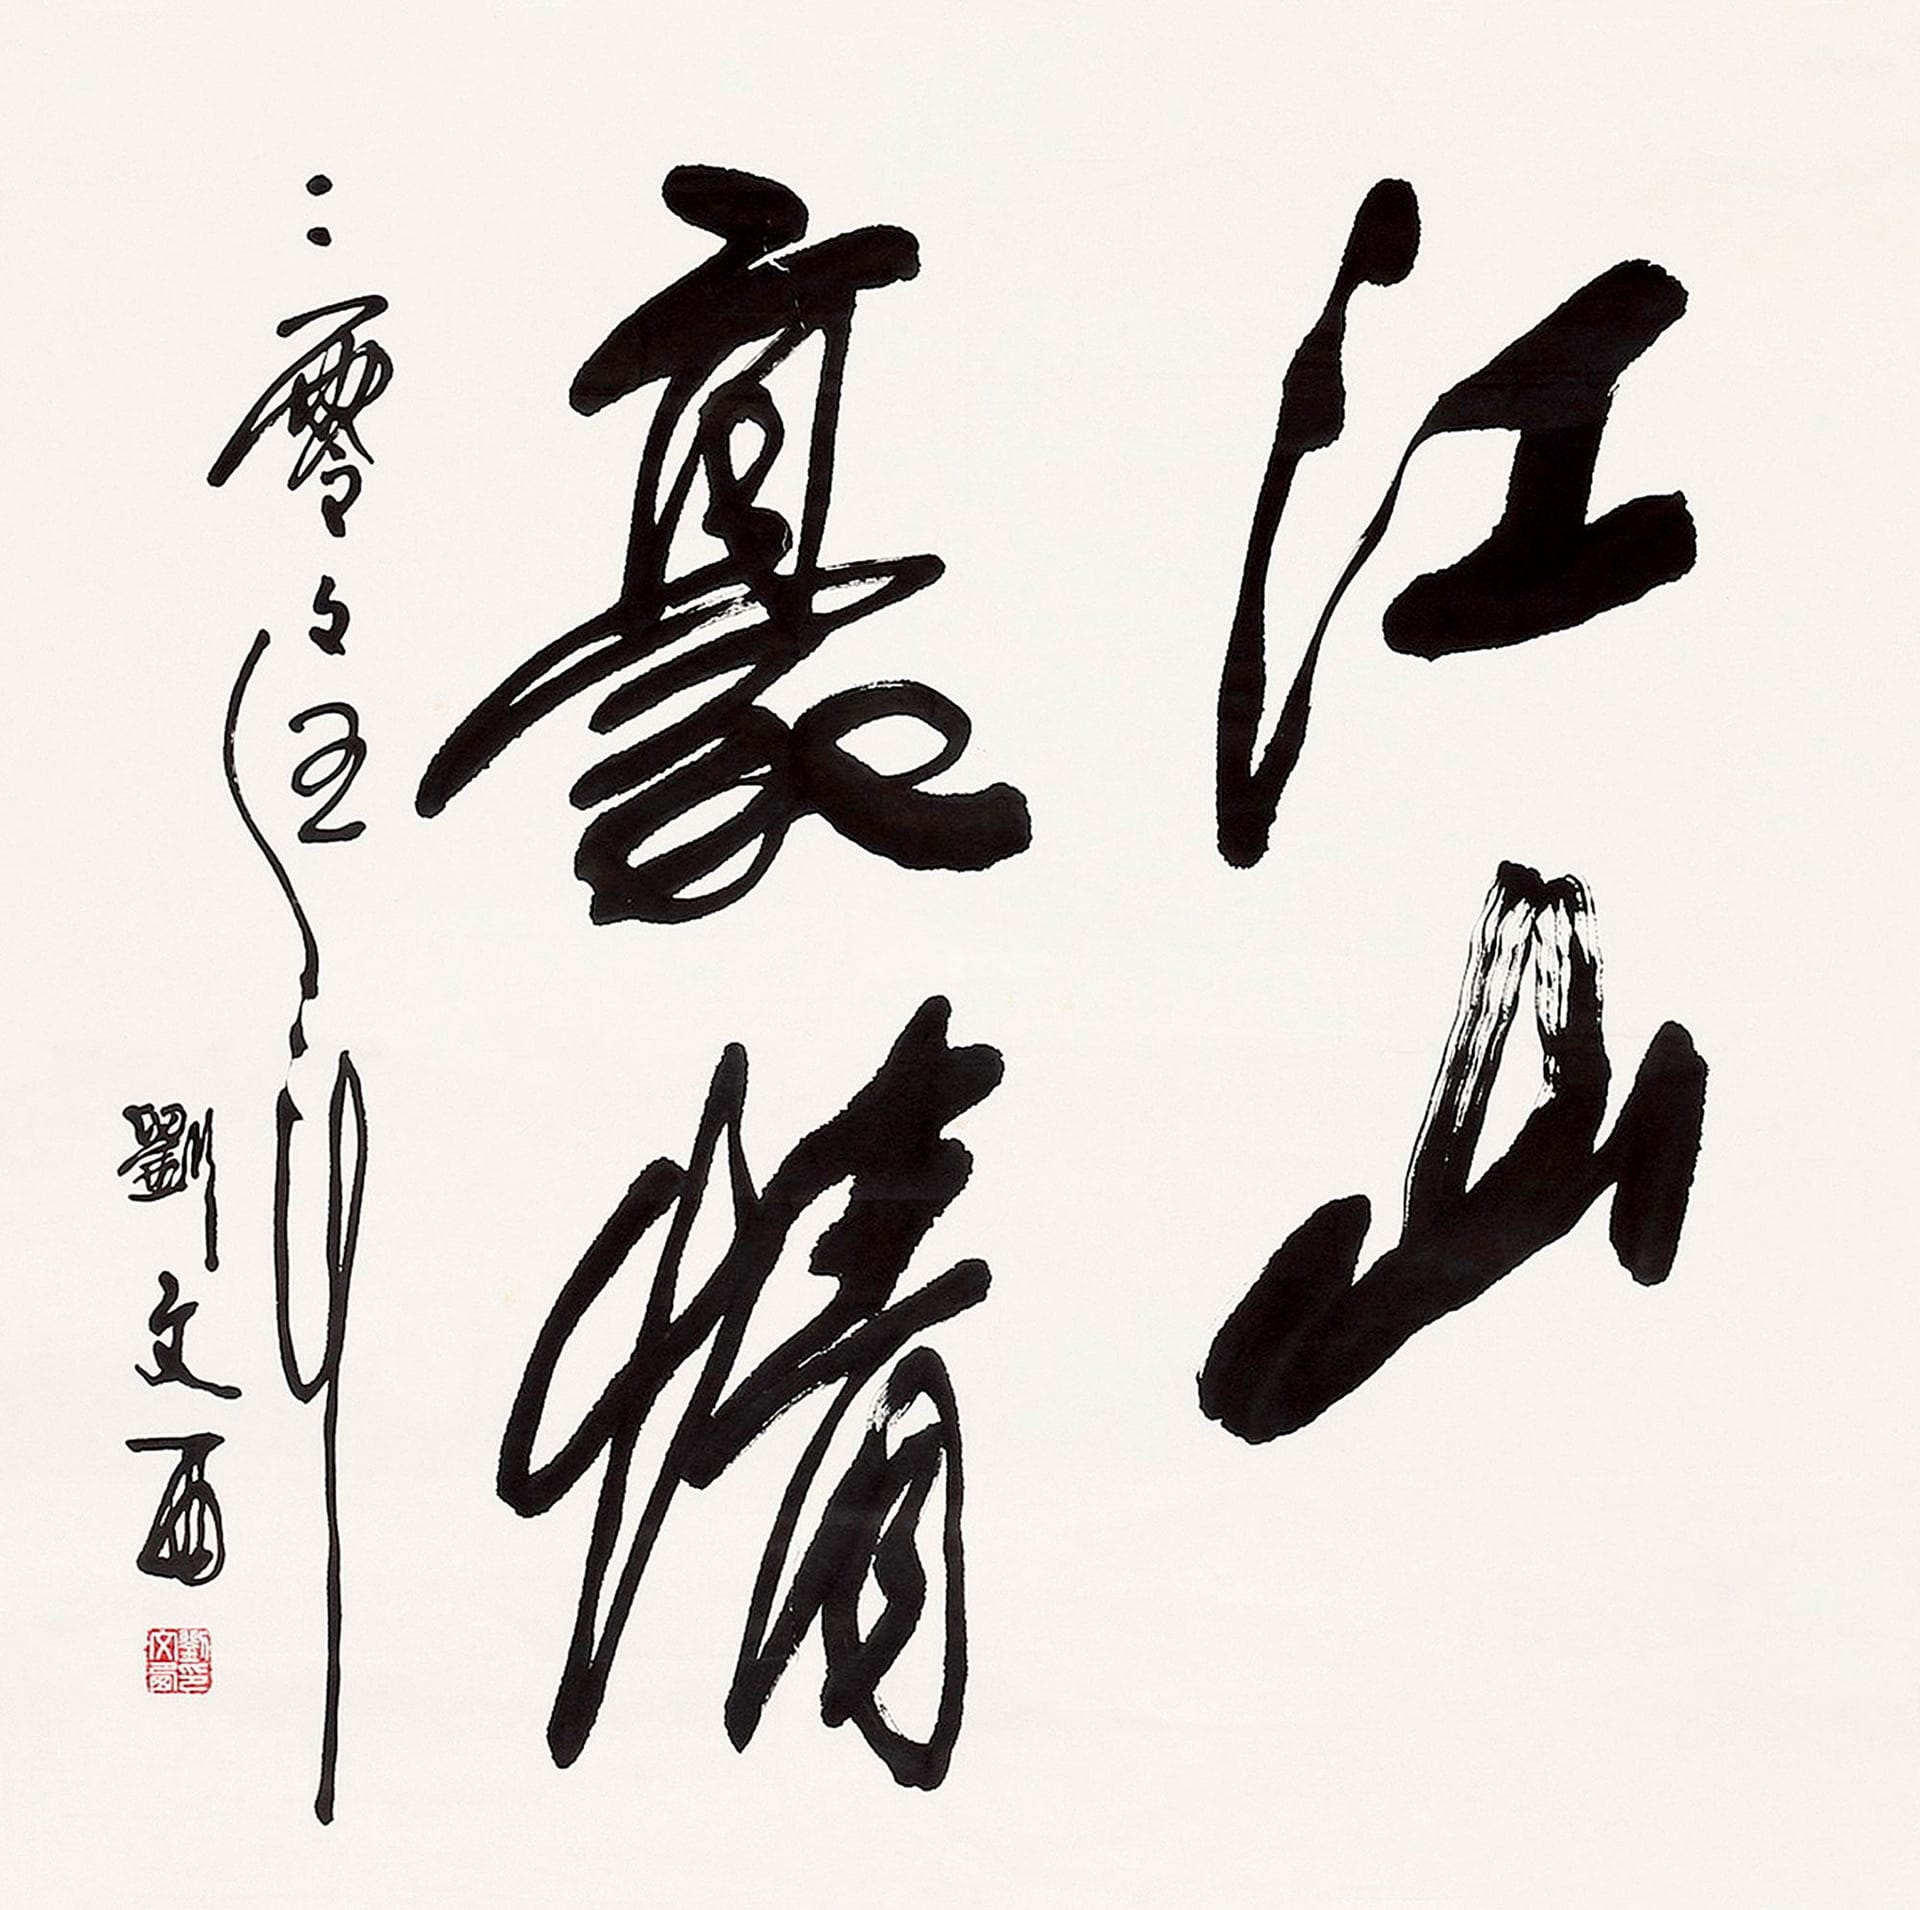 江山
豪情
二零々五年
劉文西
劉印
文西